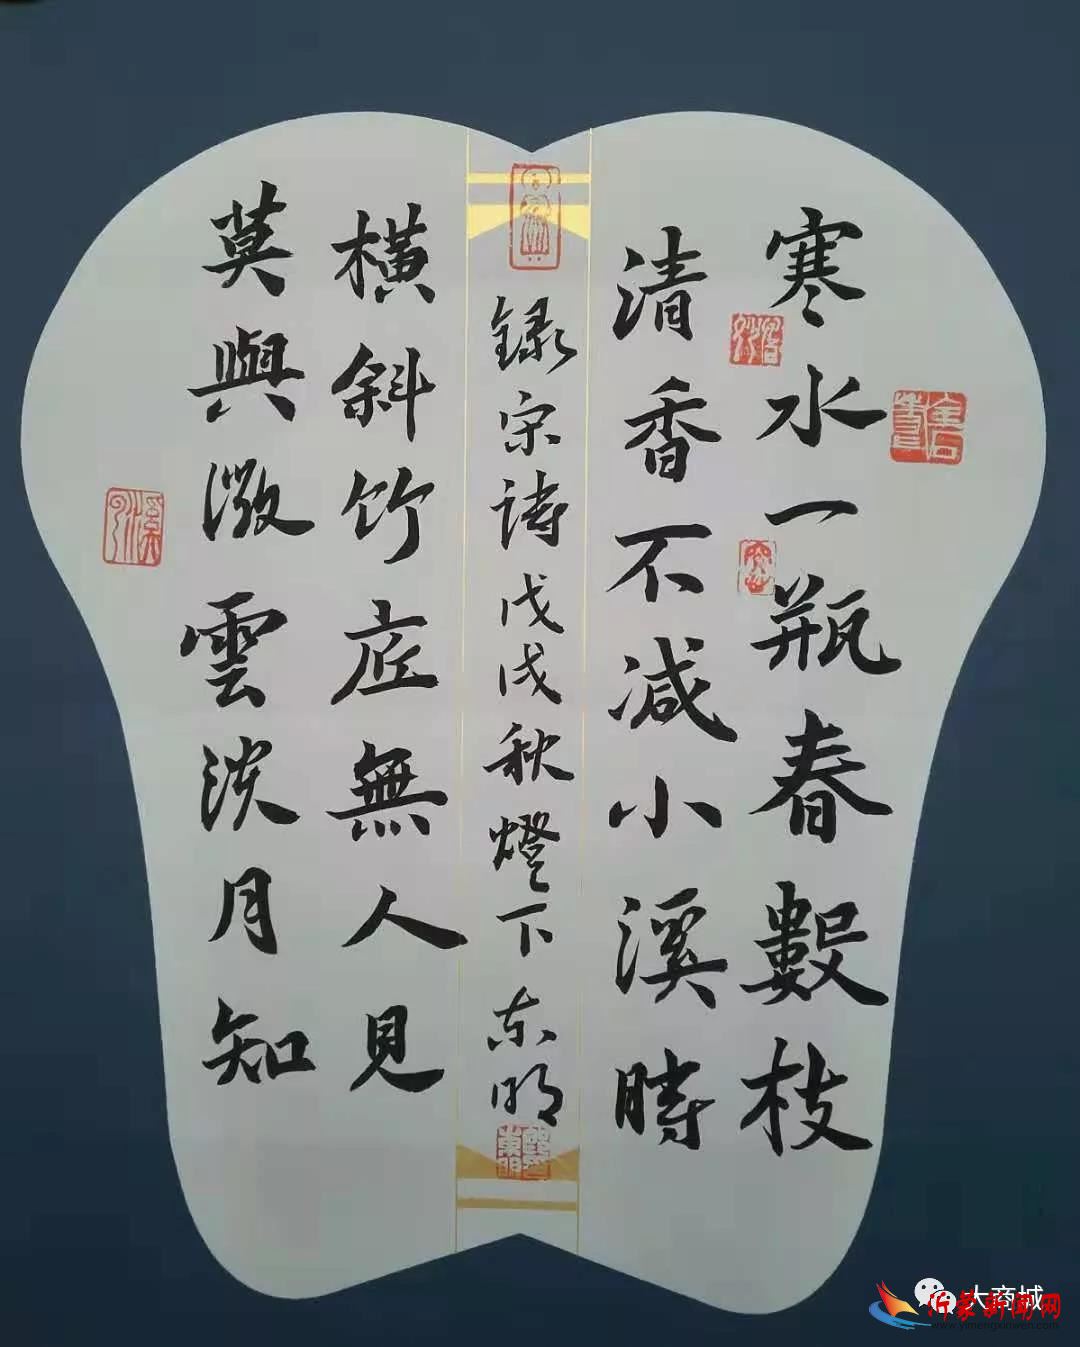 寒水一瓶春數枝
清香不減小溪時
橫斜竹底無人見
莫與微雲淡月知
錄宋詩戊戌秋燈下东明
大商城
沂蒙新闻网
www.yimengxinwen.com